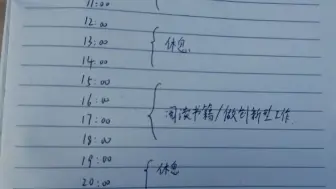 11:00
12:00
13:00 休息
14:00
15:00
16:00
17:00 阅读书籍/做创新型工作
18:00
19:00 休息
20:00